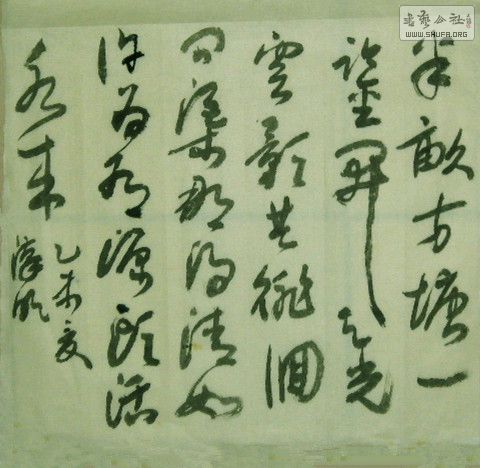 半畝方塘一
鑑開天光
雲影共徘徊
问渠那得清如
许为有源头活
水来
乙未夏
書藝公社
WWW.SHUFA.ORG